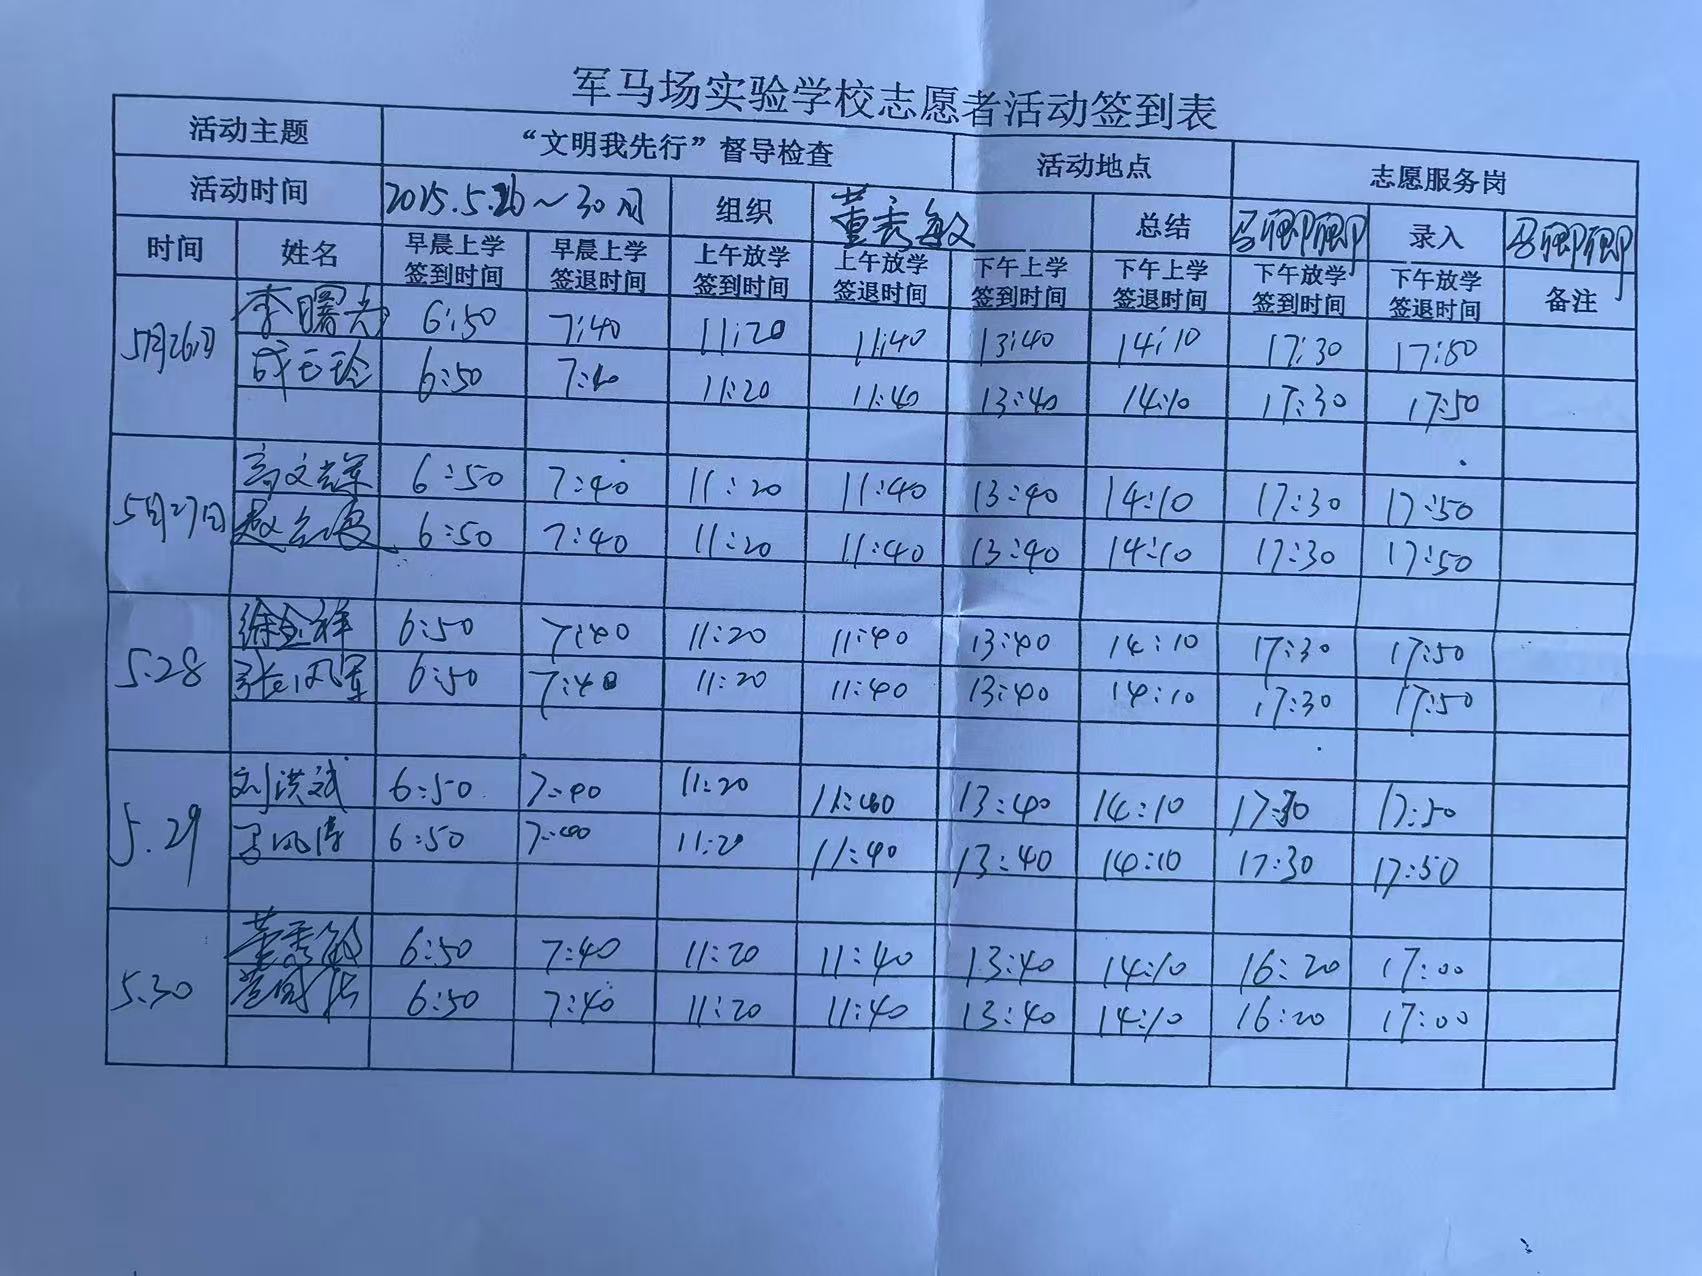 军马场实验学校志愿者活动签到表
活动主题 “文明我先行”督导检查 活动地点 志愿服务岗
活动时间 2025.5.26~30日 组织 董秀敏 总结 马卿卿 录入 马卿卿
时间 姓名 早晨上学签到时间 早晨上学签退时间 上午放学签到时间 上午放学签退时间 下午上学签到时间 下午上学签退时间 下午放学签到时间 下午放学签退时间 备注
5月26日 李曙光 6:50 7:40 11:20 11:40 13:40 14:10 17:30 17:50
成玉玲 6:50 7:40 11:20 11:40 13:40 14:10 17:30 17:50
5月27日 高文 6:50 7:40 11:20 11:40 13:40 14:10 17:30 17:50
赵 6:50 7:40 11:20 11:40 13:40 14:10 17:30 17:50
5.28 徐金祥 6:50 7:40 11:20 11:40 13:40 14:10 17:30 17:50
张凤军 6:50 7:40 11:20 11:40 13:40 14:10 17:30 17:50
5.29 刘洪斌 6:50 7:40 11:20 11:40 13:40 14:10 17:30 17:50
6:50 7:40 11:20 11:40 13:40 14:10 17:30 17:50
5.30 董秀敏 6:50 7:40 11:20 11:40 13:40 14:10 16:20 17:00
6:50 7:40 11:20 11:40 13:40 14:10 16:20 17:00